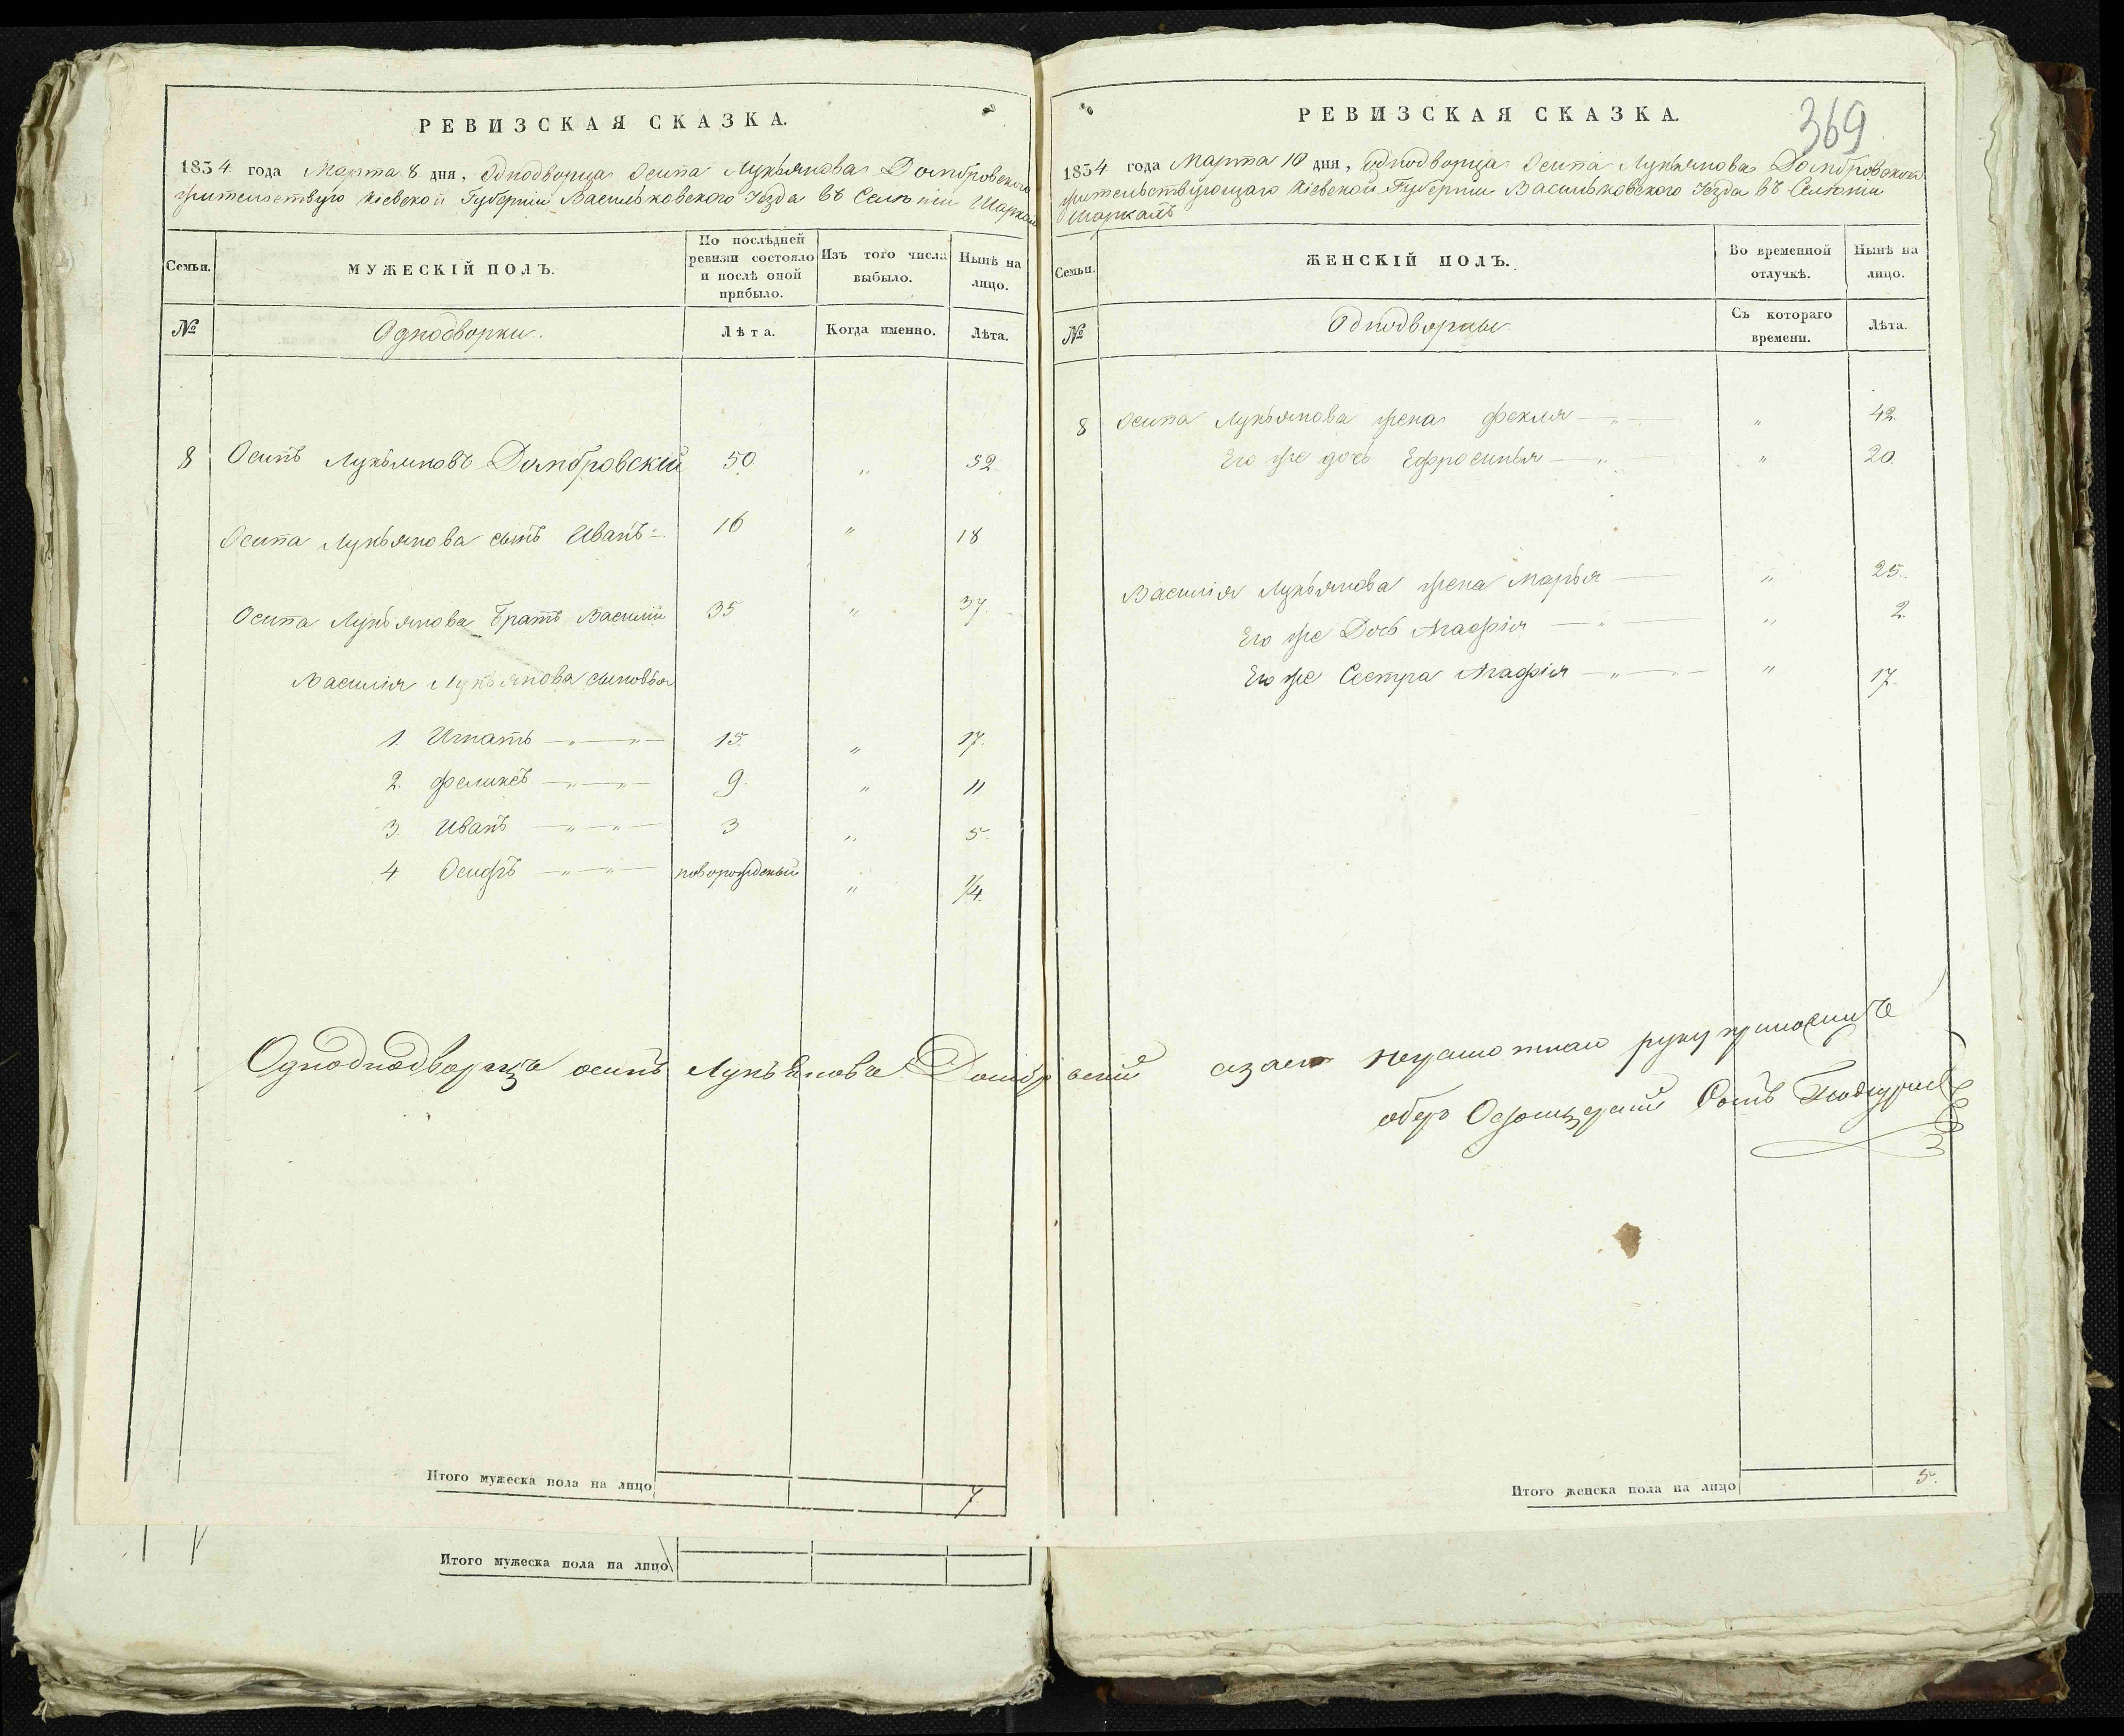 РЕВИЗСКАЯ СКАЗКА.
1834 года Марта 8 дня, Однодворца Осипа Лукьянова Домбровского
жительствую Кіевской Губерніи Васильковского Уѣзда въ Селѣніи
Семьи.
МУЖЕСКІЙ ПОЛЪ.
По послѣдней ревизіи состояло и послѣ оной прибыло.
Изъ того числа выбыло.
Нынѣ на лицо.
№
Однодворки.
Лѣта.
Когда именно.
Лѣта.
8 Осипъ Лукьяновъ Домбровскій 50 „ 52
Осипа Лукьянова сынъ Иванъ 16 „ 18
Осипа Лукьянова братъ Василій 35 „ 37.
Василія Лукьянова сыновья
1. Игнатъ 15. „ 17.
2. Феликсъ 9. „ 11
3. Иванъ 3 „ 5.
4 Осифъ новорожденый „ 1/4.
Итого мужеска пола на лицо 7
Итого мужеска пола на лицо
369
РЕВИЗСКАЯ СКАЗКА.
1834 года Марта 10 дня, однодворца Осипа Лукьянова Домбровского
жительствующаго Кіевской Губерніи Васильковского Уѣзда въ Селѣніи
Семьи.
ЖЕНСКІЙ ПОЛЪ.
Во временной отлучкѣ.
Нынѣ на лицо.
№
Однодворцы
Съ котораго времени.
Лѣта.
8 Осипа Лукьянова жена Фекля „ 42.
Его же дочь Ефросинья „ 20.
Василія Лукьянова жена Марья „ 25.
Его же Дочь Агафія „ 2.
Его же Сестра Агафія „ 17.
Одноднодворцъ осипъ Лукъяновъ Домбровский
неграмотнаго руку приложилъ
Итого женска пола на лицо 5.